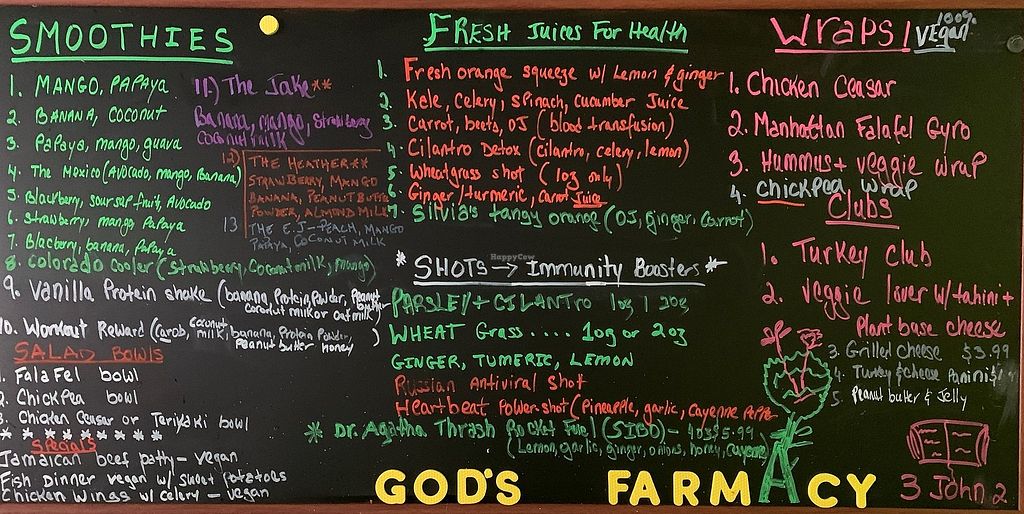 SMOOTHIES
1. MANGO, PAPAYA
2. BANANA, COCONUT
3. Papaya, mango, guava
4. The Mexico (Avocado, mango, Banana)
5. Blackberry, soursar fruit, Avocado
6. Strawberry, mango Papaya
7. Blacberry, banana, Papaya
8. Colorado Cooler (Strawberry, Coconut milk, mango)
9. Vanilla Protein shake (banana, Protein, Powder, Peanut Butter
coconut milk or oat milk)
10. Workout Reward (Carob, Coconut milk, banana, Protein Powder,
Peanut butter honey)
11.) The Jake**
Banana, mango, Strawberry
Coconut milk
12) THE HEATHER**
STRAWBERRY, MANGO
BANANA, PEANUT BUTTER
POWDER, ALMOND MILK
13 THE E.J - PEACH, MANGO
PAPAYA, COCONUT MILK
SALAD BOWLS
1. Falafel bowl
2. Chickpea bowl
3. Chicken Ceasar or Teriyaki bowl
* * * * * * * * *
Specials
Jamaican beef patty - vegan
Fish Dinner vegan w/ sweet potatoes
Chicken Wings w/ celery - vegan
FRESH Juices For Health
1. Fresh orange squeeze w/ Lemon & ginger
2. Kele, Celery, Spinach, cucumber Juice
3. Carrot, beets, OJ (blood transfusion)
4. Cilantro Detox (cilantro, celery, lemon)
5. Wheatgrass shot (1oz only)
6. Ginger/turmeric, carrot Juice
7. Silvia's tangy orange (OJ, Ginger, Carrot)
HappyCow
* SHOTS → Immunity Boosters *
PARSLEY + CILANTRO 1oz | 2oz
WHEAT Grass .... 1oz or 2oz
GINGER, TUMERIC, LEMON
Russian Antiviral Shot
Heartbeat Power-shot (Pineapple, garlic, Cayenne Pepper
* Dr. Agatha Thrash Rocket Fuel (SIBO) - 4oz $5.99
(Lemon, garlic, ginger, onions, honey, cayenne)
Wraps! 100% VEgan
1. Chicken Ceasar
2. Manhattan Falafel Gyro
3. Hummus + veggie wrap
4. Chickpea wrap
Clubs
1. Turkey Club
2. Veggie lover w/ tahini +
Plant base cheese
3. Grilled cheese $3.99
4. Turkey & Cheese Panini $
5. Peanut butter & Jelly
GOD'S FARMACY
3 John 2